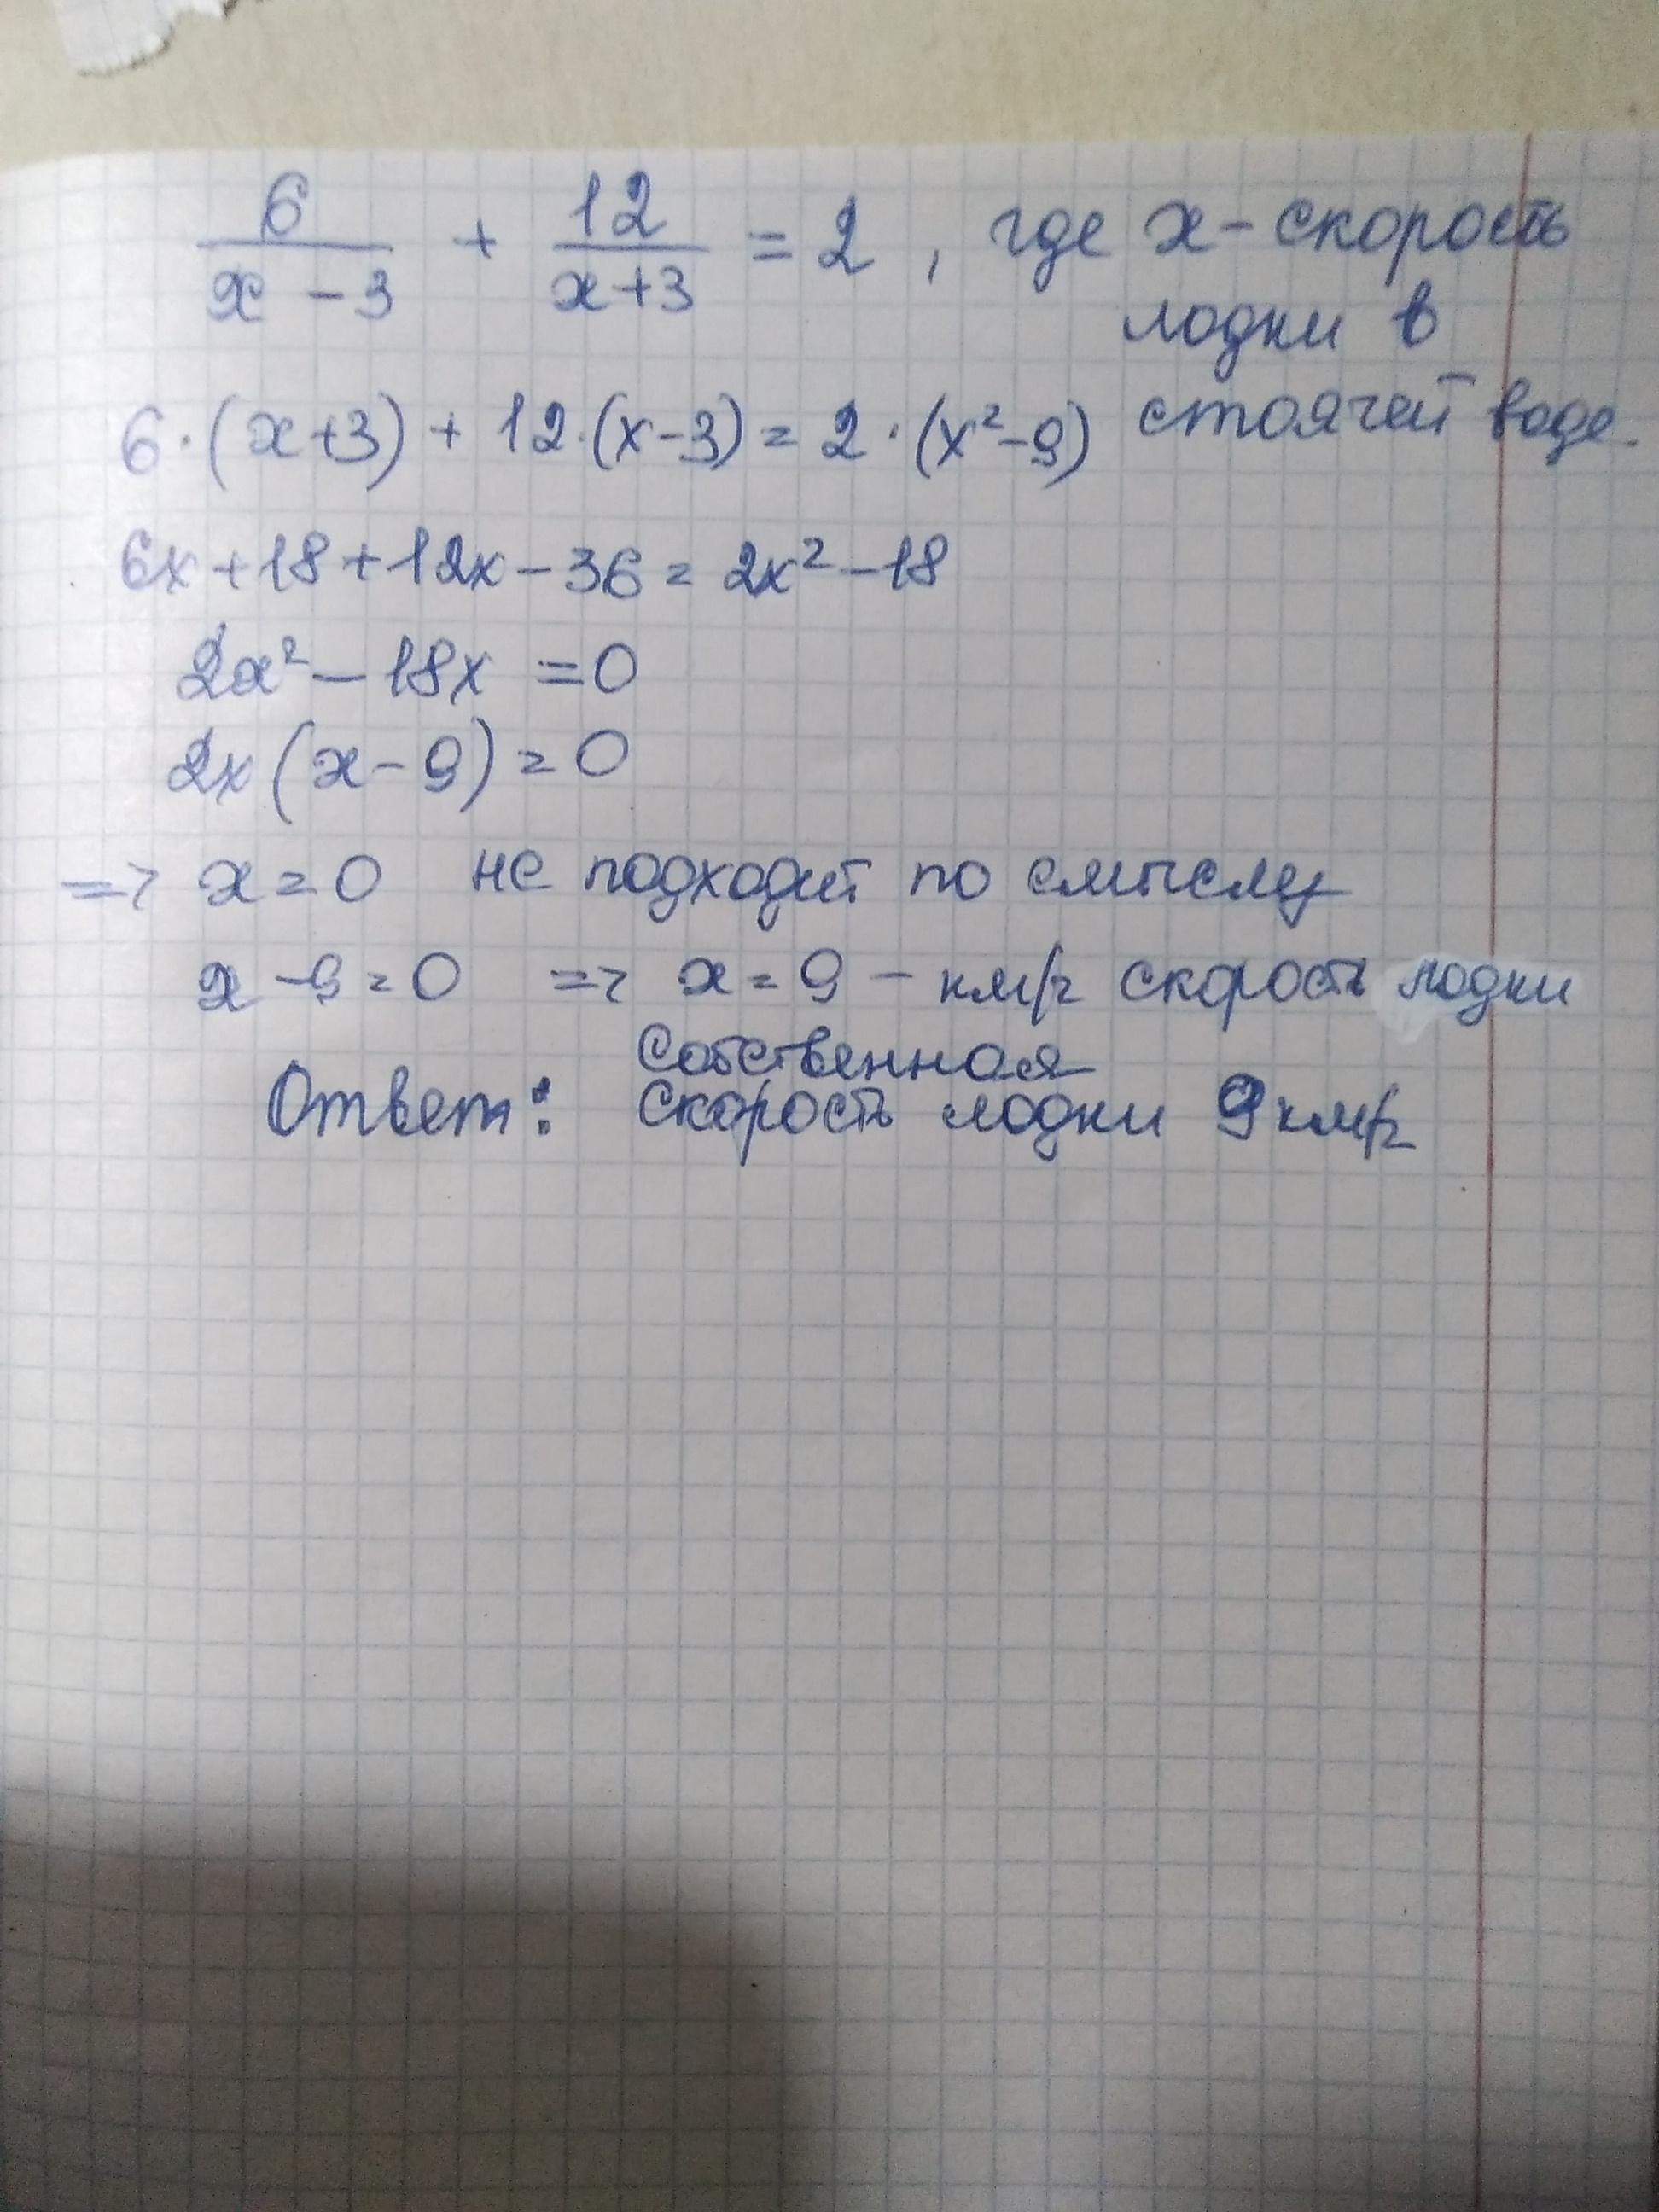 6/(x-3) + 12/(x+3) = 2, где x - скорость
лодки в
стоячей воде.
6·(x+3) + 12·(x-3) = 2·(x²-9)
6x+18+12x-36=2x²-18
2x²-18x=0
2x(x-9)=0
=> x=0 не подходит по смыслу
x-9=0 => x=9 - км/ч скорость лодки
Собственная
Ответ: скорость лодки 9 км/ч